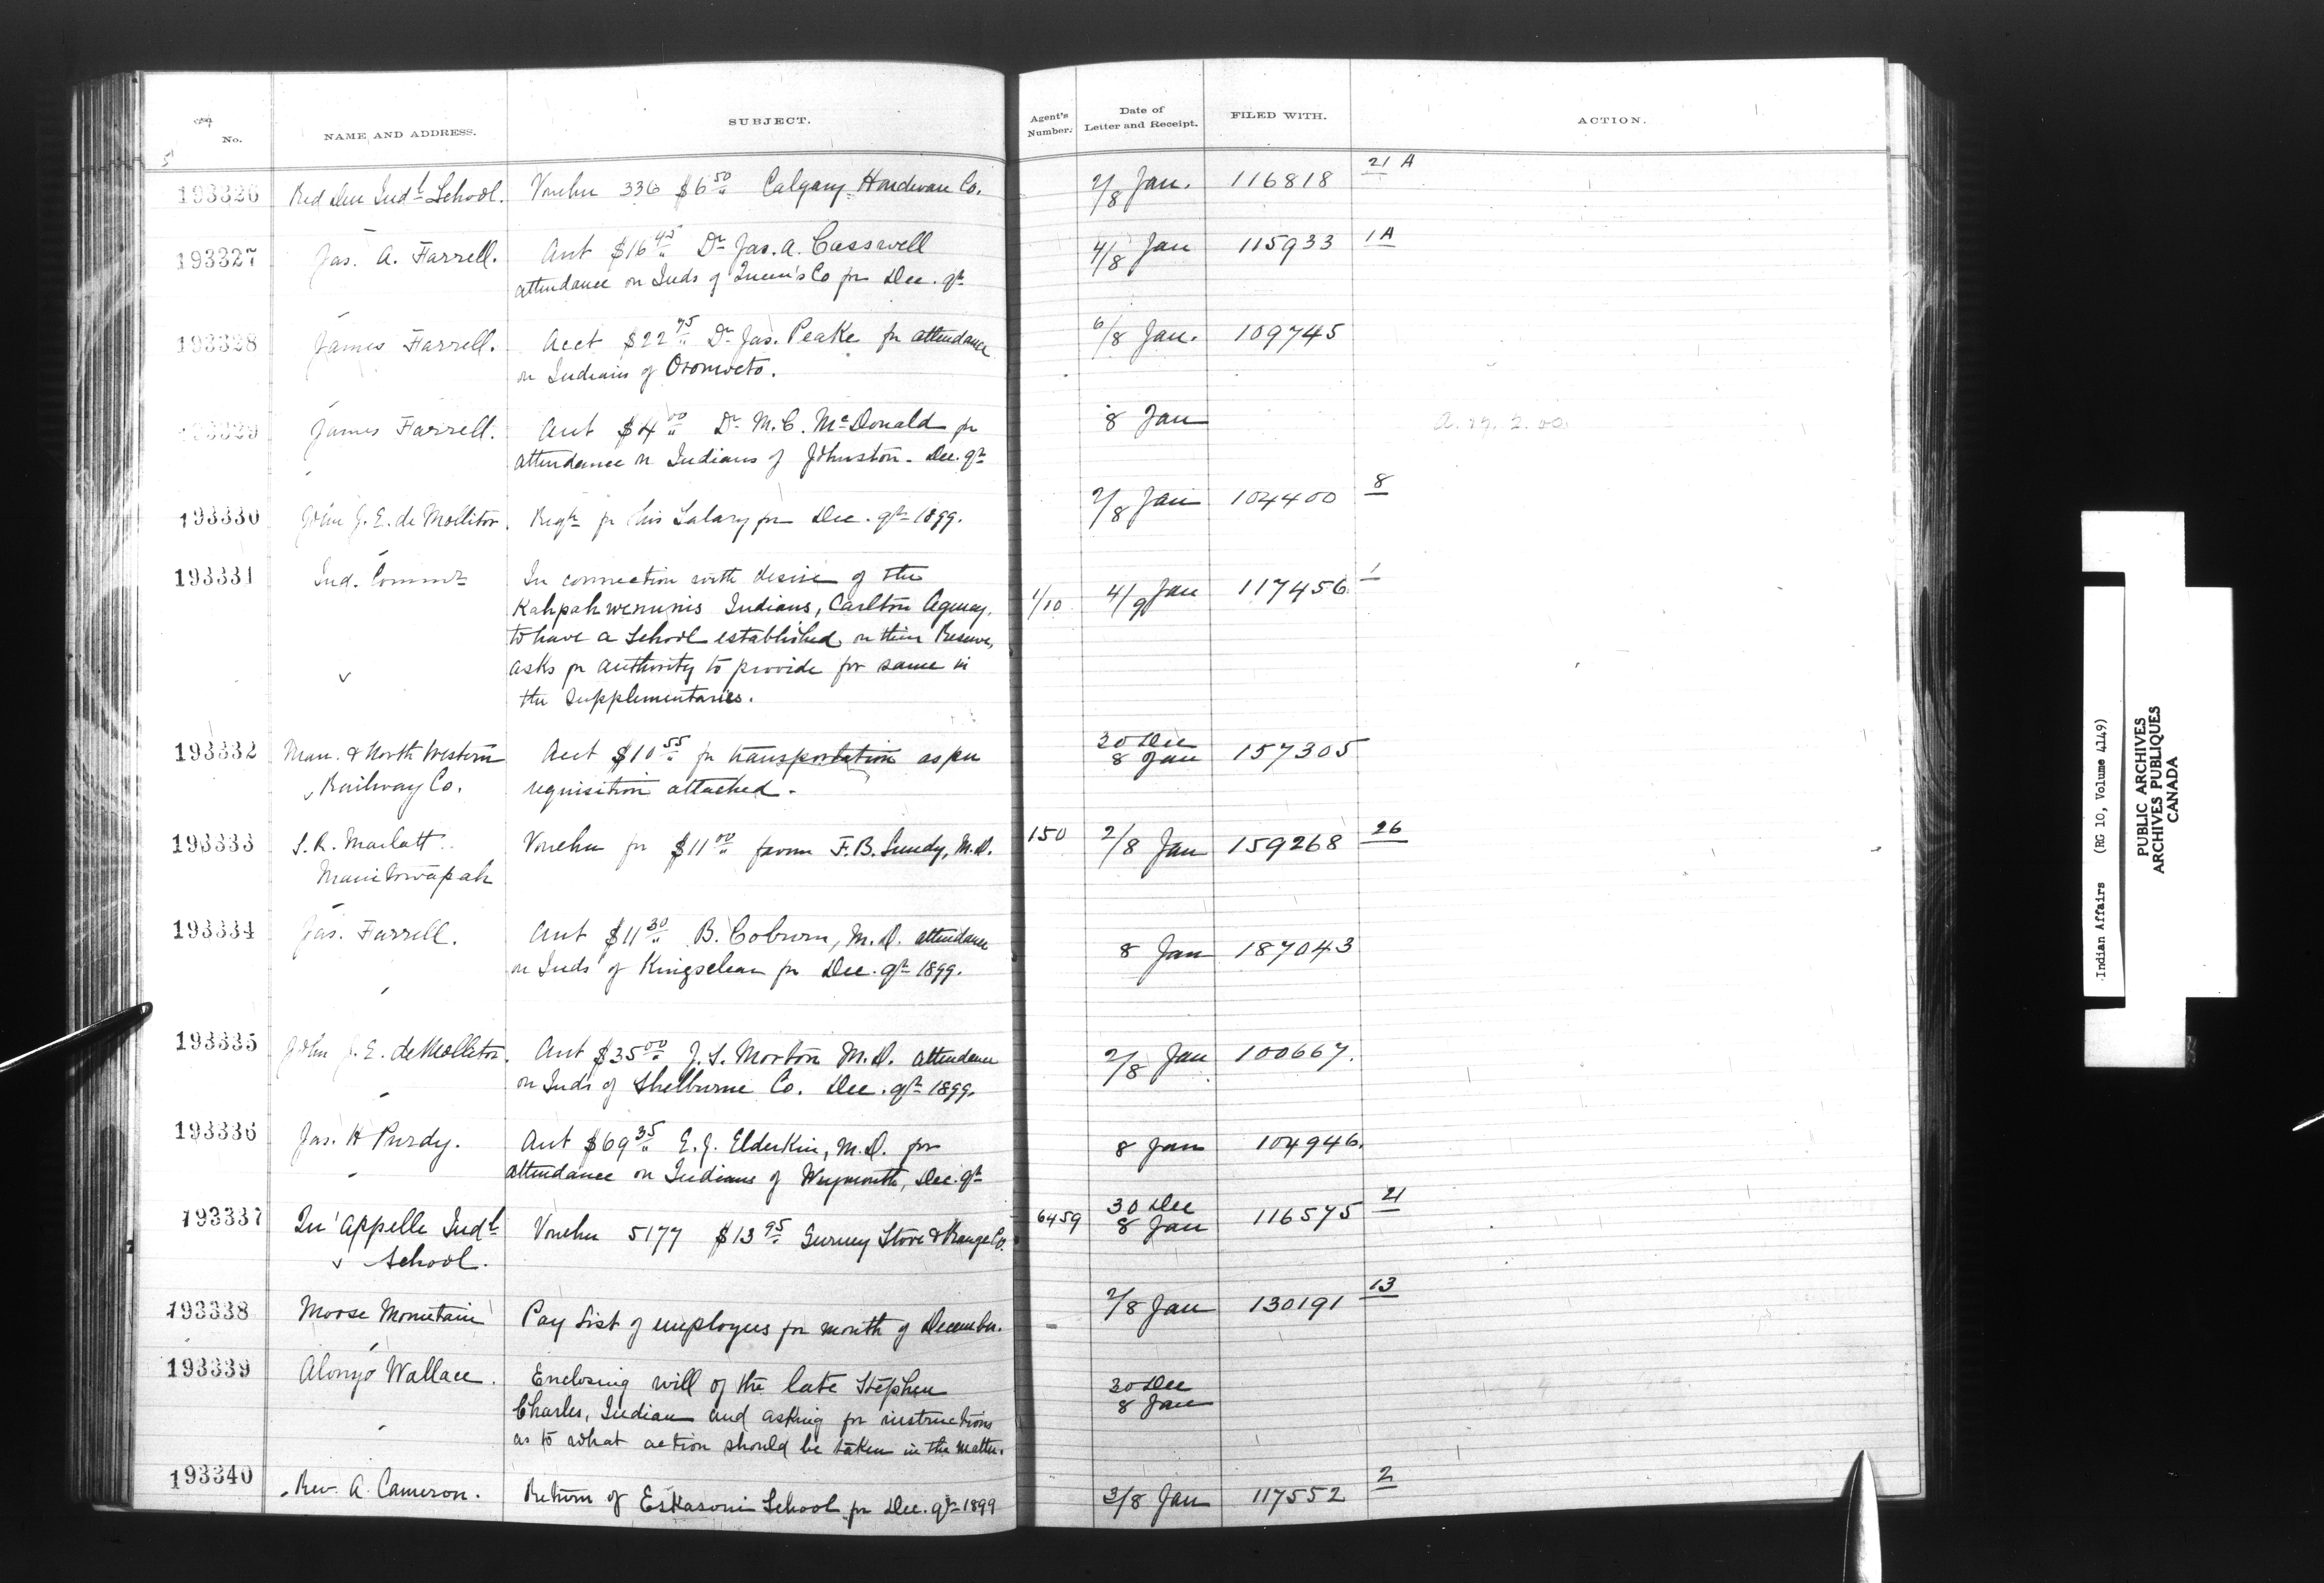 No.
NAME AND ADDRESS.
SUBJECT.
Agent's Number.
Date of Letter and Receipt.
FILED WITH.
ACTION.
193326 Red Deer Indl School. Voucher 336 $6 50 Calgary Hardware Co. 2/8 Jan. 116818 21 A
193327 Jas. A. Farrell. Acct $16 45 Dr Jas. A. Casswell 4/8 Jan 115933 1A
attendance on Inds of Queen's Co for Dec. qr
193328 James Farrell. Acct $22 75 Dr Jas. Peake for attendance 6/8 Jan. 109745
on Indians of Oromocto.
193329 James Farrell. Acct $4 00 Dr M. C. McDonald for 8 Jan
attendance on Indians of Johnston - Dec. qr
193330 John J. E. de Molitor. Reqn for his Salary for Dec. qr 1899. 2/8 Jan 104400 8
193331 Ind. Commr In connection with desire of the 1/10 4/9 Jan 117456 1
Kahpahwenunis Indians, Carlton Agency,
to have a School established on their Reserve,
asks for authority to provide for same in
the Supplementaries.
193332 Man. & North Western Acct $10 55 for transportation as per 30 Dec 8 Jan 157305
Railway Co. requisition attached.
193333 S. R. Marlatt Voucher for $11 00 favor F. B. Lundy, M.D. 150 2/8 Jan 159268 26
Manitowapah
193334 Jas. Farrell. Acct $11 30 B. Coburn, M.D. attendance 8 Jan 187043
on Inds of Kingsclear for Dec. qr 1899.
193335 John J. E. de Molitor. Acct $35 00 J. S. Morton M.D. attendance 2/8 Jan 100667.
on Inds of Shelburne Co. Dec. qr 1899.
193336 Jas. H Purdy. Acct $69 35 E. J. Elderkin, M.D. for 8 Jan 104946.
attendance on Indians of Weymouth, Dec. qr
193337 Qu'Appelle Indl Voucher 5177 $13 95 Gurney Stove & Range Co. 6459 30 Dec 8 Jan 116575 21
School.
193338 Moose Mountain Pay List of employees for month of December. 2/8 Jan 130191 13
193339 Alonzo Wallace. Enclosing will of the late Stephen 30 Dec 8 Jan
Charles, Indian and asking for instructions
as to what action should be taken in the matter.
193340 Rev. A. Cameron. Return of Eskasoni School for Dec. qr 1899 3/8 Jan 117552 2
Indian Affairs (RG 10, Volume 4149)
PUBLIC ARCHIVES
ARCHIVES PUBLIQUES
CANADA